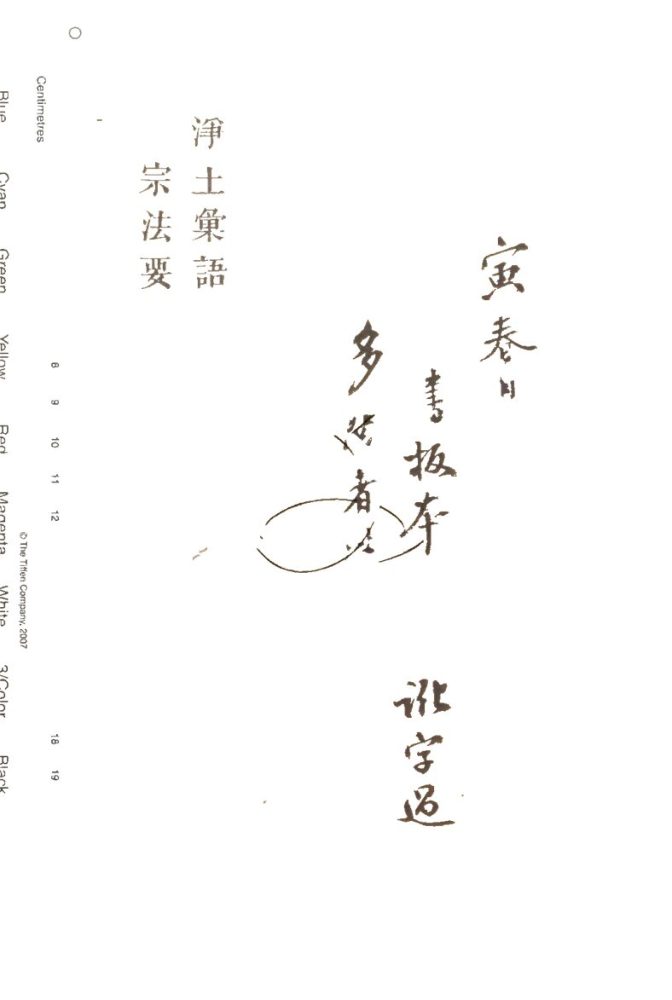 寅春日
書板本 訛字過
多 者
淨土彙語
宗法要
Centimetres
8 9 10 11 12 18 19
© The Tiffen Company, 2007
Blue Cyan Green Yellow Red Magenta White 3/Color Black